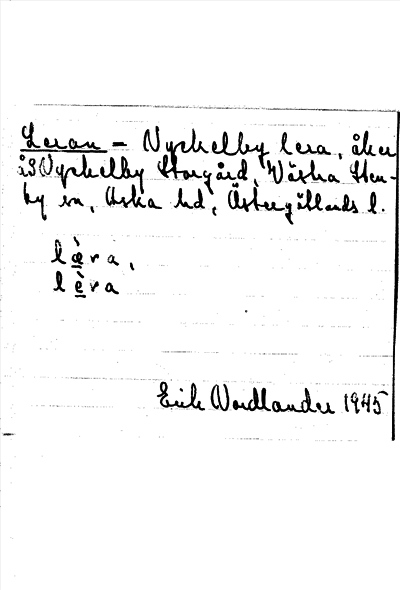 Leran - Nyckelby lera, åker
åS Nyckelby Storgård, Västra Sten-
by sn, Aska hd, Östergötlands l.
læ̀ra,
lè̱ra
Erik Nordlander 1945